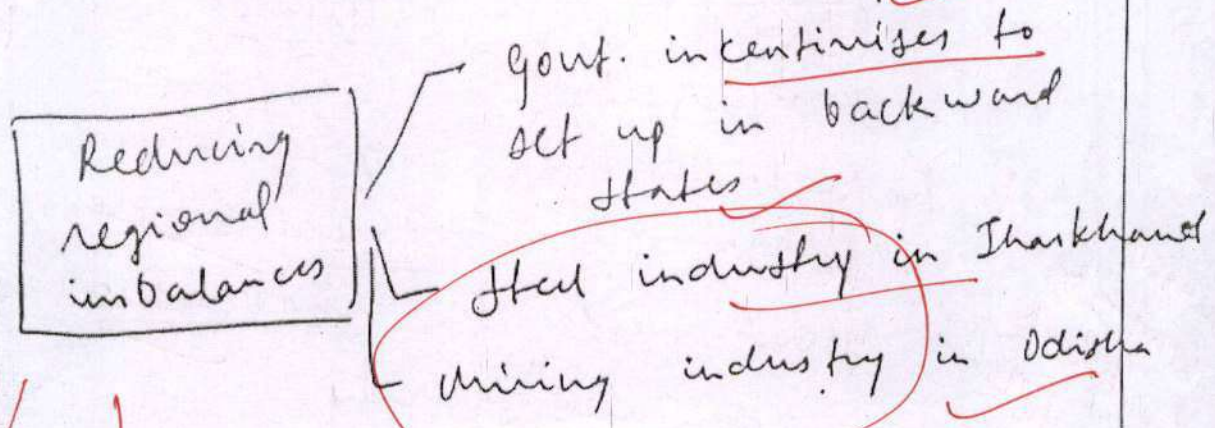 Reducing
regional
imbalances
Govt. incentivises to
set up in backward
states
Steel industry in Jharkhand
Mining industry in Odisha